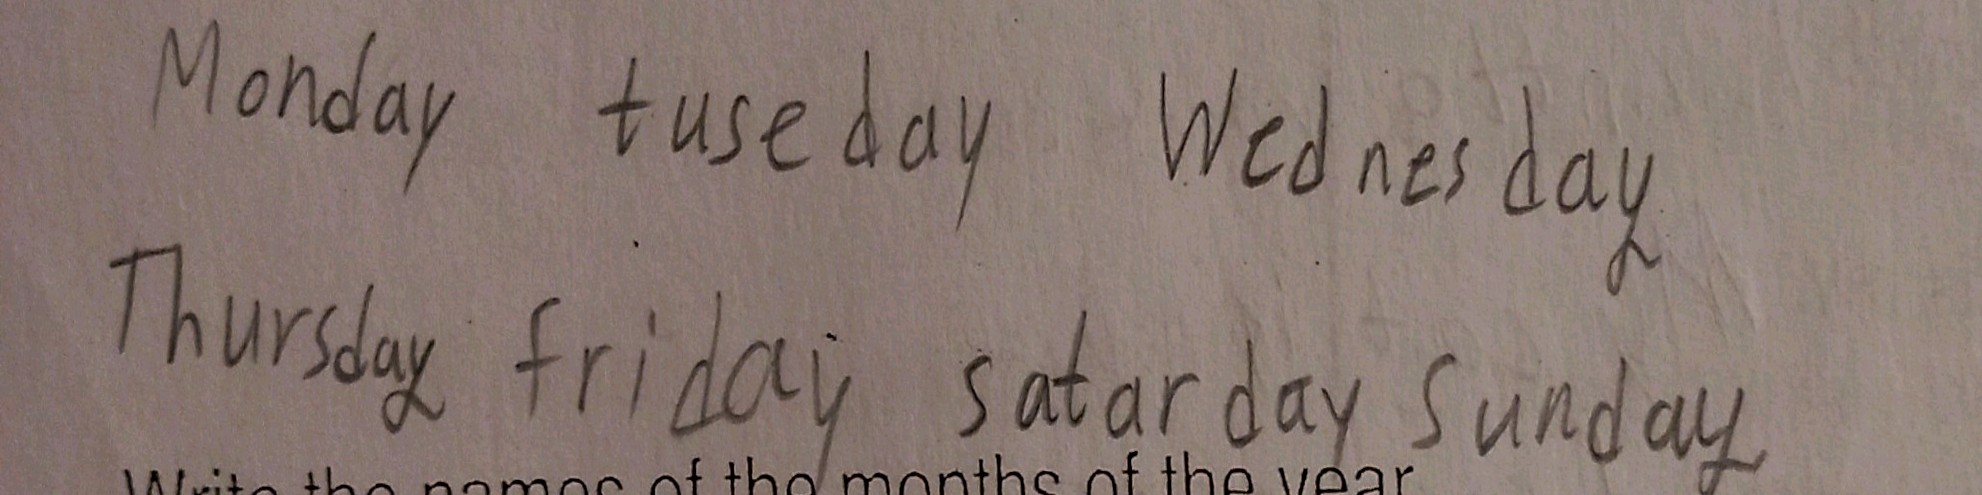 Monday tuseday Wednesday
Thursday friday satarday Sunday
Write the names of the months of the year